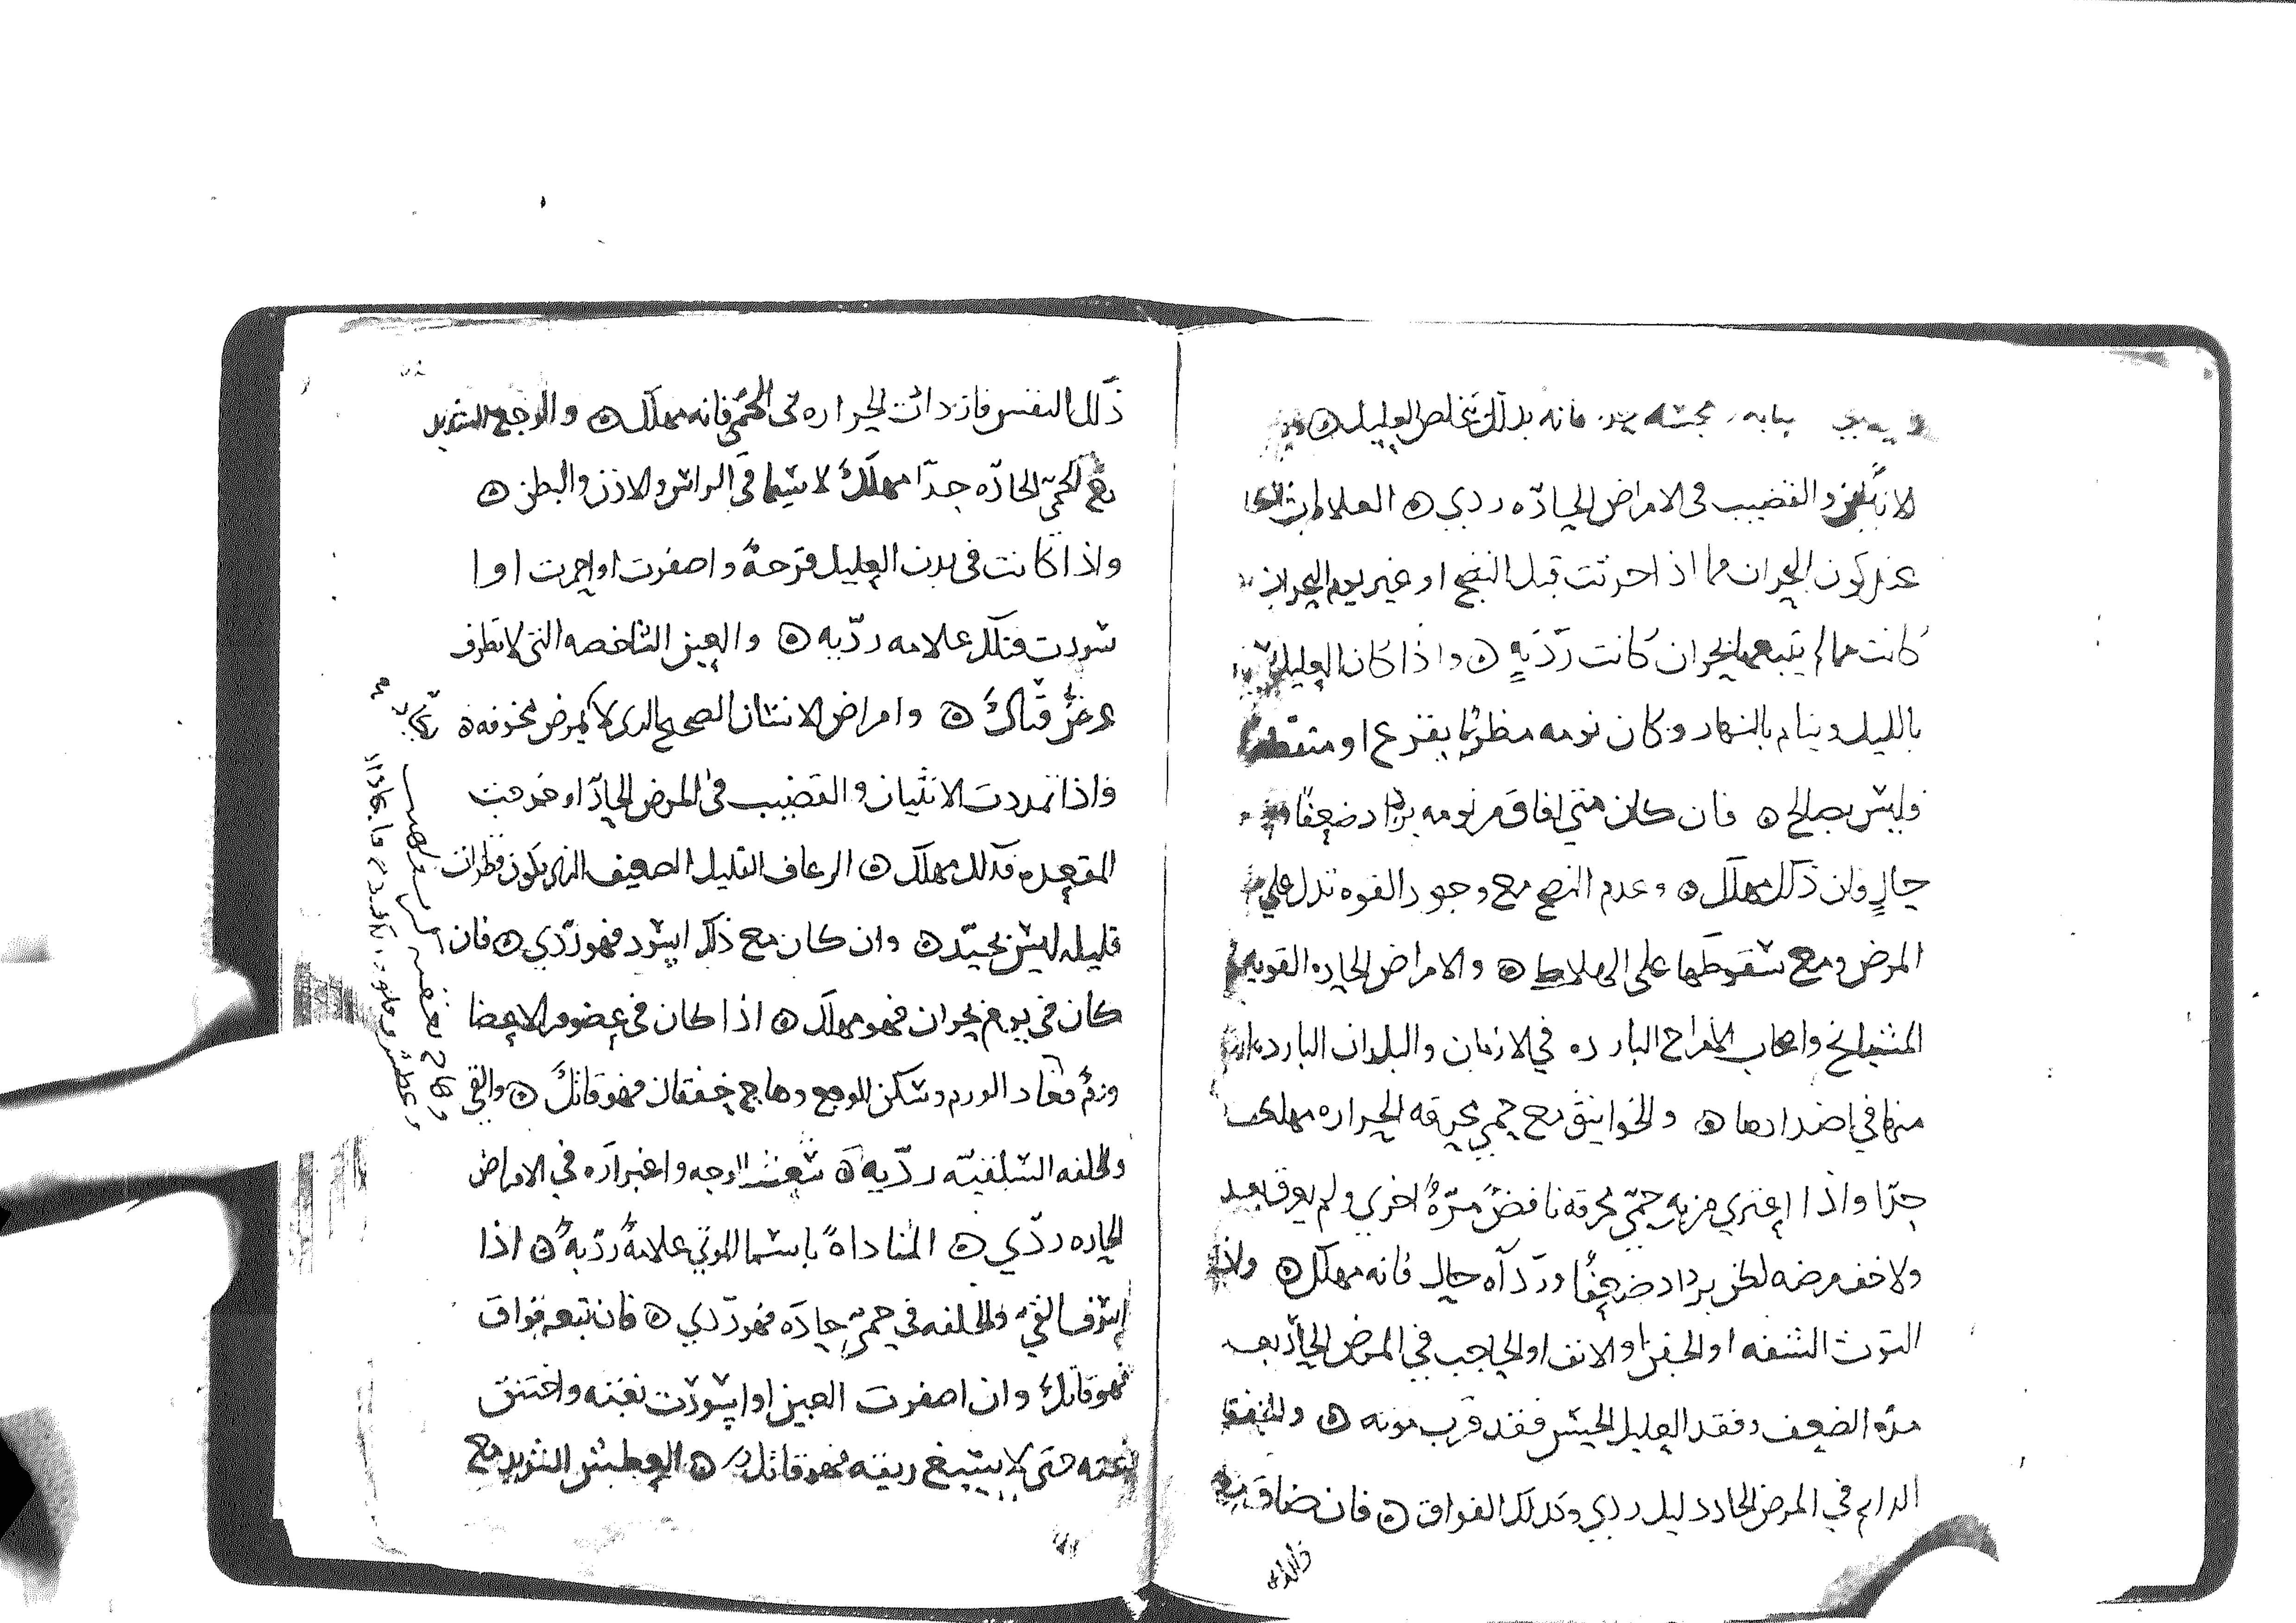 فانه بذلك يتخلص العليل ه
الانثيين والقضيب فى الامراض الحادّه ردي ه العلامات التى
عند كون البحران مما اذا حدثت قبل النضج او غير يوم البحران
كانت مما لم يتبعها بحران كانت ردّيه ه واذا كان العليل
بالليل وينام بالنهار وكان نومه مظربًا يفزع او متقطعا
فليس بصالح ه فان كان متى افاق من نومه يزداد ضعفًا
حالٍ فان ذلك مهلك ه وعدم النضج مع وجود القوه تدل على
المرض ومع سقوطها على الهلاك ه والامراض الحاده القويه
المشايخ واصحاب الامزاج البارده في الازمان والبلدان البارده
منها في اضدادها ه والخوانيق مع حمى محرقه الحراره مهلكه
جدًا واذا اعترى من به حمّى محرقه نافضٌ مرّةً اخرى ولم يعرق بعد
ولا خف مرضه لكن يزداد ضعفًا وردآه حال فانه مهلك ه واذا
التوت الشفه او الجفن او الانف او الحاجب في المرض الحادّ بعد
مدّه الضعف وفقد العليل الحس فقد قرب موته ه والخفقان
الدايم في المرض الحاد دليل ردي وكذلك الفواق ه فان ضاق مع
ذلك النفس
ذلك النفس فازدادت الحراره فى الحمّى فانه مهلك ه والوجع الشديد
مع الحمّى الحادّه جدًا مهلكٌ لا سيما فى الراس والاذن والبطن ه
واذا كانت في بدن العليل قرحةٌ واصفرت او احمرت او ا
سودت فتلك علامه ردّيه ه والعين الشاخصه التى لا تطرف
عرضٌ قتالٌ ه وامراض الانسان الصحيح الذى لا يمرض مخوفه ه
واذا تمددت الانثيان والقضيب فى المرض الحادّ او خرجت
المقعده فذلك مهلك ه الرعاف القليل الضعيف الذى يكون قطرات
قليله ليس بجيّد ه وان كان مع ذلك اسود فهو ردّي ه فان
كان في يوم بحران فهو مهلك ه اذا كان في عضو من الاعضا
ورمٌ فعاد الورم وسكن الوجع وهاج خفقان فهو قاتلٌ ه والقي
والخلفه السلقيّه ردّيه ه شعث الوجه واغبراره في الامراض
الحاده ردّي ه المناداةً باسما الموتى علامةٌ ردّيهٌ ه اذا
اسرف القيّ والخلفه في حمىّ حادّه فهو ردّي ه فان تبعه فواق
فهو قاتلٌ وان اصفرت العين او اسودّت بغته واختنق
بغته حتى لا يسيغ ريقه فهو قاتل ه العطش الشديد مع